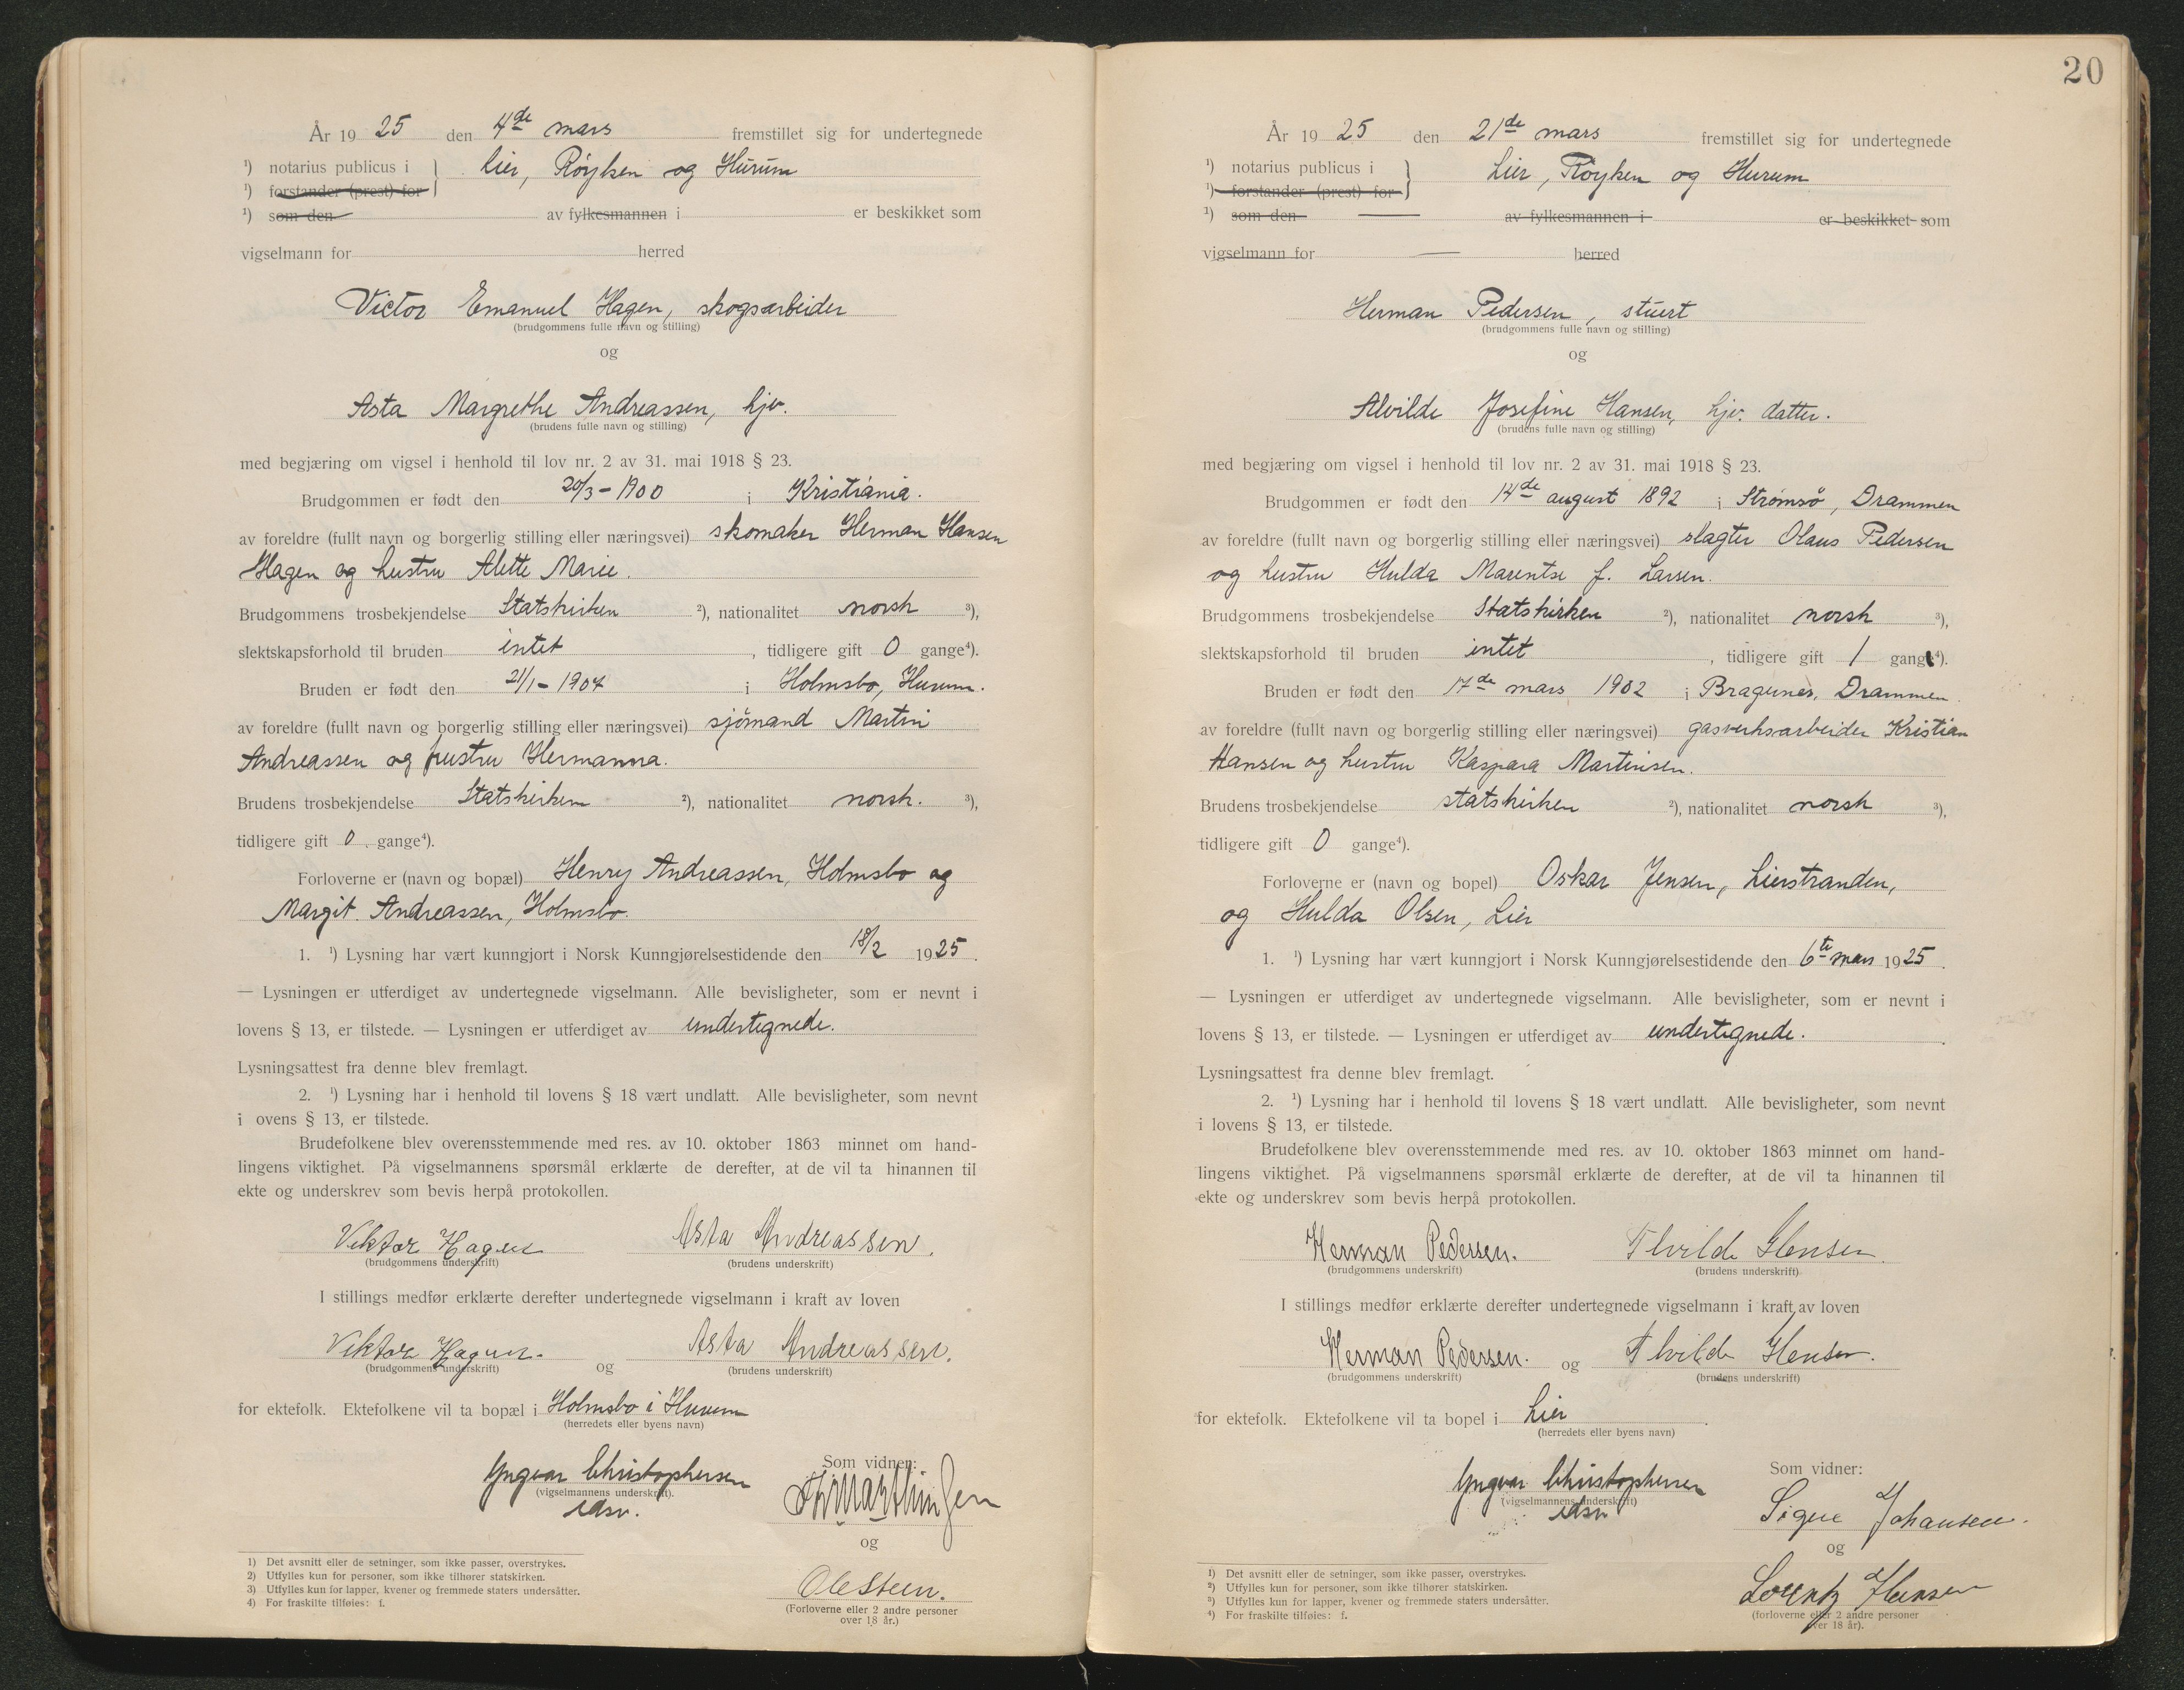 År 1925 den 4de mars fremstillet sig for undertegnede
1) notarius publicus i } Lier, Røyken og Hurum
1) forstander (prest) for
1) som den av fylkesmannen i er beskikket som
vigselmann for herred
Victor Emanuel Hagen, skogsarbeider
(brudgommens fulle navn og stilling)
og
Asta Margrethe Andreassen, hjv.
(brudens fulle navn og stilling)
med begjæring om vigsel i henhold til lov nr. 2 av 31. mai 1918 § 23.
Brudgommen er født den 20/3-1900 i Kristiania.
av foreldre (fullt navn og borgerlig stilling eller næringsvei) skomaker Herman Hansen
Hagen og hustru Alette Marie.
Brudgommens trosbekjendelse Statskirken 2), nationalitet norsk 3),
slektskapsforhold til bruden intet, tidligere gift 0 gange4).
Bruden er født den 21/1-1904 i Holmsbo, Hurum.
av foreldre (fullt navn og borgerlig stilling eller næringsvei) sjömand Martin
Andreassen og hustru Hermanna.
Brudens trosbekjendelse Statskirken 2), nationalitet norsk. 3),
tidligere gift 0 gange4).
Forloverne er (navn og bopæl) Henry Andreassen, Holmsbo og
Margit Andreassen, Holmsbo.
1. 1) Lysning har vært kunngjort i Norsk Kunngjørelsestidende den 18/2 1925.
— Lysningen er utferdiget av undertegnede vigselmann. Alle bevisligheter, som er nevnt i
lovens § 13, er tilstede. — Lysningen er utferdiget av undertegnede.
Lysningsattest fra denne blev fremlagt.
2. 1) Lysning har i henhold til lovens § 18 vært undlatt. Alle bevisligheter, som nevnt
i ovens § 13, er tilstede.
Brudefolkene blev overensstemmende med res. av 10. oktober 1863 minnet om hand-
lingens viktighet. På vigselmannens spørsmål erklærte de derefter, at de vil ta hinannen til
ekte og underskrev som bevis herpå protokollen.
Viktor Hagen Asta Andreassen.
(brudgommens underskrift) (brudens underskrift)
I stillings medfør erklærte derefter undertegnede vigselmann i kraft av loven
Viktor Hagen. og Asta Andreassen.
(brudgommens underskrift) (brudens underskrift)
for ektefolk. Ektefolkene vil ta bopæl i Holmsbo i Hurum
(herredets eller byens navn)
Yngvar Christophersen
(vigselmannens underskrift).
edsv.
Som vidner:
og
Ole Steen.
(Forloverne eller 2 andre personer
over 18 år.)
1) Det avsnitt eller de setninger, som ikke passer, overstrykes.
2) Utfylles kun for personer, som ikke tilhører statskirken.
3) Utfylles kun for lapper, kvener og fremmede staters undersåtter.
4) For fraskilte tilføies: f.
20
År 1925 den 21de mars fremstillet sig for undertegnede
1) notarius publicus i } Lier, Røyken og Hurum
1) forstander (prest) for
1) som den av fylkesmannen i er beskikket som
vigselmann for herred
Herman Pedersen, stuert
(brudgommens fulle navn og stilling)
og
Alvilde Josefine Hansen, hjv. datter.
(brudens fulle navn og stilling)
med begjæring om vigsel i henhold til lov nr. 2 av 31. mai 1918 § 23.
Brudgommen er født den 14de august 1892 i Strømsö, Drammen
av foreldre (fullt navn og borgerlig stilling eller næringsvei) slagter Olaus Pedersen
og hustru Hulda Marentse f. Larsen.
Brudgommens trosbekjendelse Statskirken 2), nationalitet norsk 3),
slektskapsforhold til bruden intet, tidligere gift 1 gang4).
Bruden er født den 17de mars 1902 i Bragernes, Drammen.
av foreldre (fullt navn og borgerlig stilling eller næringsvei) gasverksarbeider Kristian
Hansen og hustru Kaspara Martinsen.
Brudens trosbekjendelse statskirken 2), nationalitet norsk 3),
tidligere gift 0 gange4).
Forloverne er (navn og bopel) Oskar Jensen, Lierstranden,
og Hulda Olsen, Lier
1. 1) Lysning har vært kunngjort i Norsk Kunngjørelsestidende den 6te mars 1925.
— Lysningen er utferdiget av undertegnede vigselmann. Alle bevisligheter, som er nevnt i
lovens § 13, er tilstede. — Lysningen er utferdiget av undertegnede.
Lysningsattest fra denne blev fremlagt.
2. 1) Lysning har i henhold til lovens § 18 vært undlatt. Alle bevisligheter, som nevnt
i lovens § 13, er tilstede.
Brudefolkene blev overensstemmende med res. av 10. oktober 1863 minnet om hand-
lingens viktighet. På vigselmannens spørsmål erklærte de derefter, at de vil ta hinannen til
ekte og underskrev som bevis herpå protokollen.
Herman Pedersen. Alvilde Hansen.
(brudgommens underskrift) (brudens underskrift)
I stillings medfør erklærte derefter undertegnede vigselmann i kraft av loven
Herman Pedersen. og Alvilde Hansen.
(brudgommens underskrift) (brudens underskrift)
for ektefolk. Ektefolkene vil ta bopel i Lier.
(herredets eller byens navn)
Yngvar Christophersen
(vigselmannens underskrift)
edsv
Som vidner:
Signe Johansen.
og
Lorentz Hansen
(forloverne eller 2 andre personer
over 18 år).
1) Det avsnitt eller de setninger, som ikke passer, overstrykes.
2) Utfylles kun for personer, som ikke tilhører statskirken.
3) Utfylles kun for lapper, kvener og fremmede staters undersåtter.
4) For fraskilte tilføies: f.